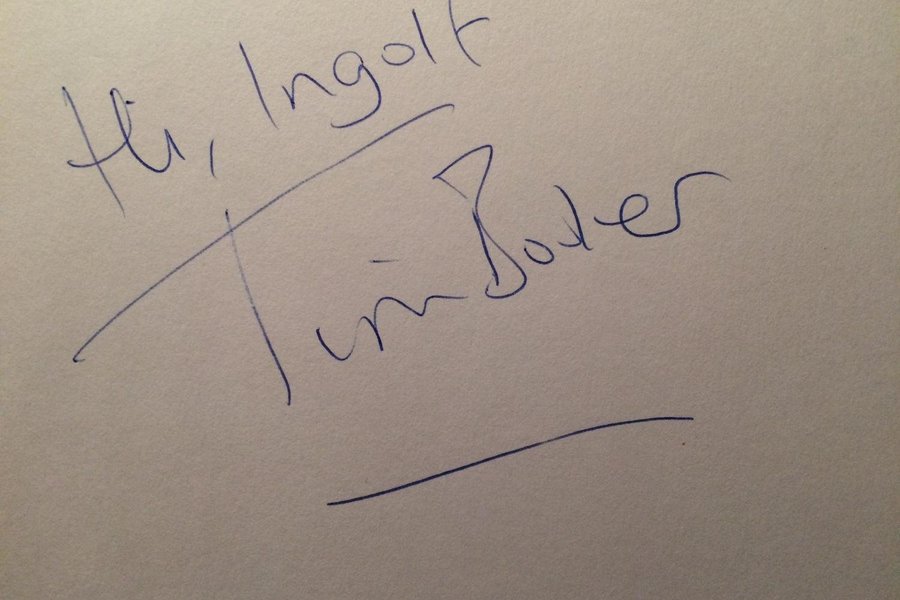 Hi, Ingolf
Tim Boxer